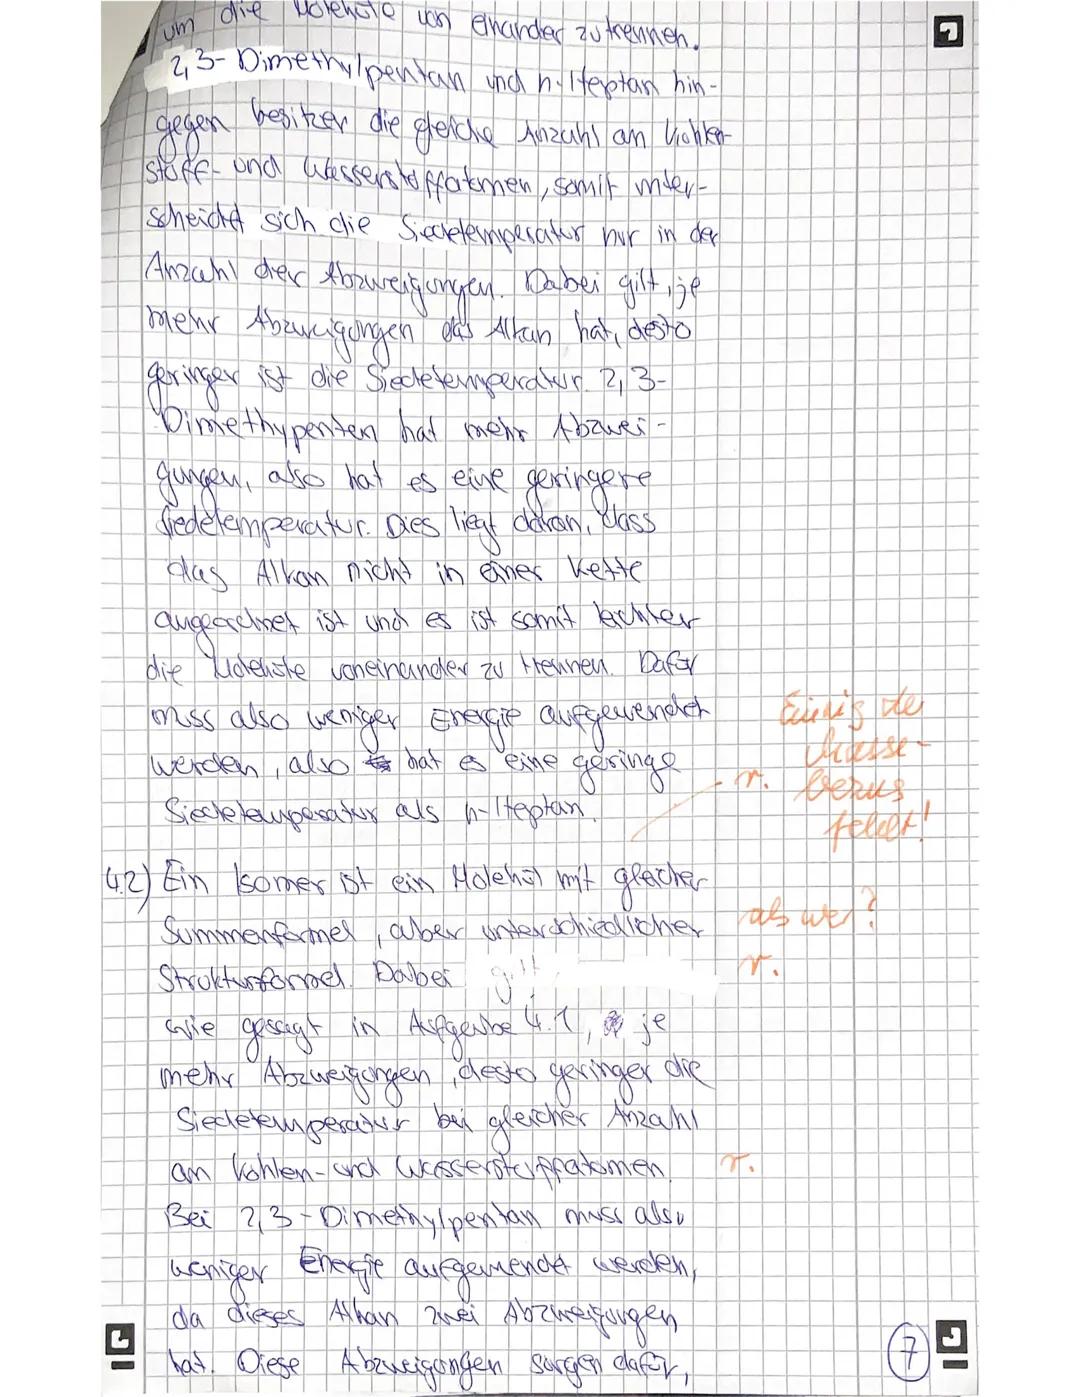 um die Moleküle von einander zu trennen.
2,3-Dimethylpentan und n-Heptan hin-
gegen besitzen die gleiche Anzahl an Kohlen-
stoff- und Wasserstoffatomen, somit unter-
scheidet sich die Siedetemperatur nur in der
Anzahl der Abzweigungen. Dabei gilt, je
mehr Abzweigungen das Alkan hat, desto
geringer ist die Siedetemperatur. 2,3-
Dimethypenten hat mehr Abzwei-
gungen, also hat es eine geringere
Siedetemperatur. Dies liegt daran, dass
das Alkan nicht in einer Kette
angeordnet ist und es ist somit leichter
die Moleküle voneinander zu trennen. Dafür
muss also weniger Energie aufgewendet
werden, also hat es eine geringe
Siedetemperatur als n-Heptan.
r.
bezug
fehlt!
4.2) Ein Isomer ist ein Molekül mit gleicher
Summenformel, aber unterschiedlicher
als wer?
Strukturformel. Dabei gilt
r.
wie gesagt in Aufgabe 4.1, je
mehr Abzweigungen, desto geringer die
Siedetemperatur bei gleicher Anzahl
an Kohlen- und Wasserstoffatomen.
r.
Bei 2,3-Dimethylpentan muss also
weniger Energie aufgewendet werden,
da dieses Alkan zwei Abzweigungen
hat. Diese Abzweigungen sorgen dafür,
7